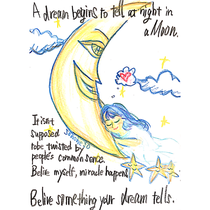 A dream begins to tell at night in
a Moon.
It isn't
supposed
to be twisted by
people's common sance.
Belive myself, miracle happens
Belive something your dream tells.